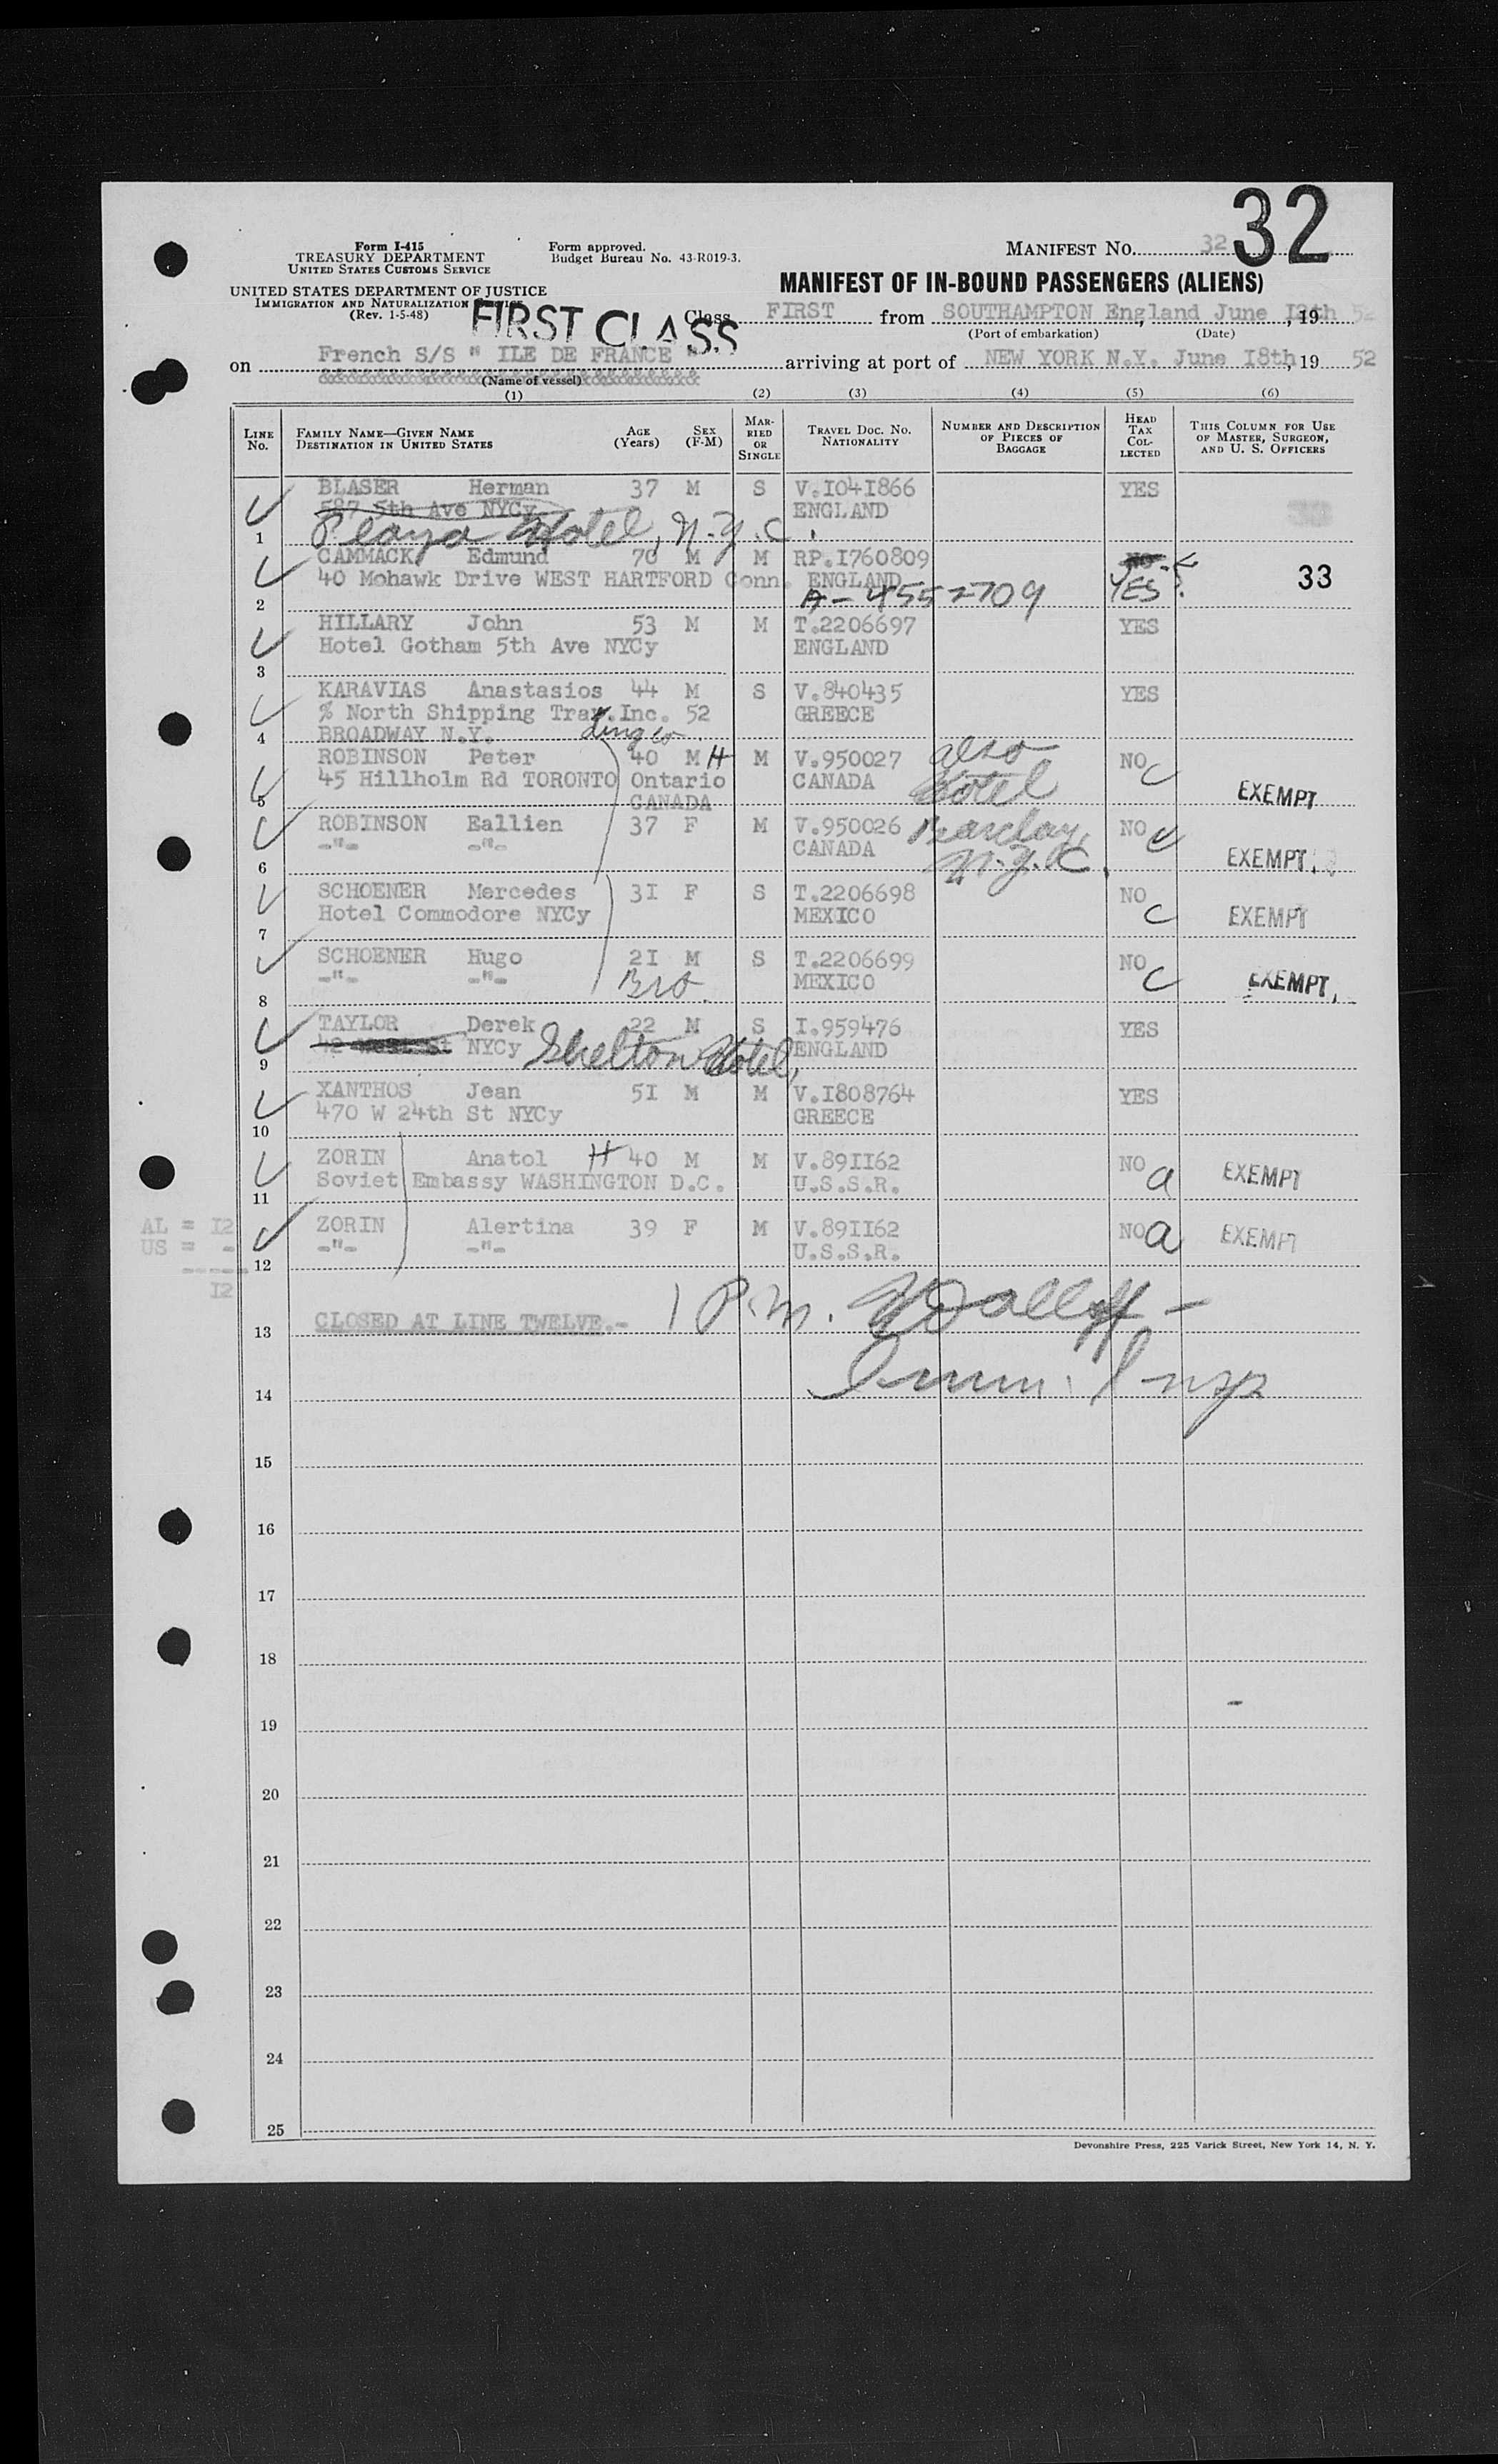 32
Form I-415
TREASURY DEPARTMENT
UNITED STATES CUSTOMS SERVICE
Form approved.
Budget Bureau No. 43-R019-3.
MANIFEST NO. 32
UNITED STATES DEPARTMENT OF JUSTICE
IMMIGRATION AND NATURALIZATION
(Rev. 1-5-48)
MANIFEST OF IN-BOUND PASSENGERS (ALIENS)
FIRST CLASS
Class FIRST from SOUTHAMPTON England, June 12th, 19 52
(Port of embarkation) (Date)
on French S/S " ILE DE FRANCE " arriving at port of NEW YORK N.Y. June I8th, 19 52
(Name of vessel)
(1) (2) (3) (4) (5) (6)
LINE No. FAMILY NAME—GIVEN NAME DESTINATION IN UNITED STATES AGE (Years) SEX (F-M) MARRIED OR SINGLE TRAVEL DOC. NO. NATIONALITY NUMBER AND DESCRIPTION OF PIECES OF BAGGAGE HEAD TAX COLLECTED THIS COLUMN FOR USE OF MASTER, SURGEON, AND U. S. OFFICERS
BLASER Herman 37 M S V.I04I866 YES
587 5th Ave NYCy ENGLAND
1 Plaza Hotel, N.Y.C.
CAMMACK Edmund 70 M M RP.I760809 No
40 Mohawk Drive WEST HARTFORD Conn. ENGLAND YES 33
2 A-4552709
HILLARY John 53 M M T.2206697 YES
Hotel Gotham 5th Ave NYCy ENGLAND
3
KARAVIAS Anastasios 44 M S V.840435 YES
% North Shipping Tra .Inc. 52 GREECE
4 BROADWAY N.Y. ding co
ROBINSON Peter 40 M H M V.950027 also NO C
45 Hillholm Rd TORONTO Ontario CANADA Hotel EXEMPT
5 CANADA
ROBINSON Eallien 37 F M V.950026 Barclay, NO C
-"- -"- CANADA N.Y.C. EXEMPT
6
SCHOENER Mercedes 3I F S T.2206698 NO C
Hotel Commodore NYCy MEXICO EXEMPT
7
SCHOENER Hugo 2I M S T.2206699 NO C
-"- -"- Bro. MEXICO EXEMPT
8
TAYLOR Derek 22 M S I.959476 YES
42 West St NYCy Shelton Hotel, ENGLAND
9
XANTHOS Jean 5I M M V.I808764 YES
470 W 24th St NYCy GREECE
10
ZORIN Anatol H 40 M M V.89II62 NO a EXEMPT
Soviet Embassy WASHINGTON D.C. U.S.S.R.
11
AL = I2 ZORIN Alertina 39 F M V.89II62 NO a EXEMPT
US = - -"- -"- U.S.S.R.
12
I2
13 CLOSED AT LINE TWELVE.- 1 P.m.
14 Imm. Insp
15
16
17
18
19
20
21
22
23
24
25
Devonshire Press, 225 Varick Street, New York 14, N. Y.